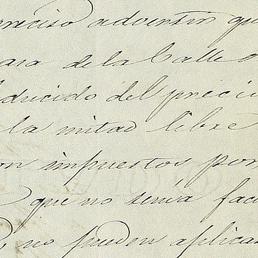 preciso advertir qu
casa de la Calle
educido del preci
la mitad libre
on impuestos por
que no sería fac
no pueden aplicar